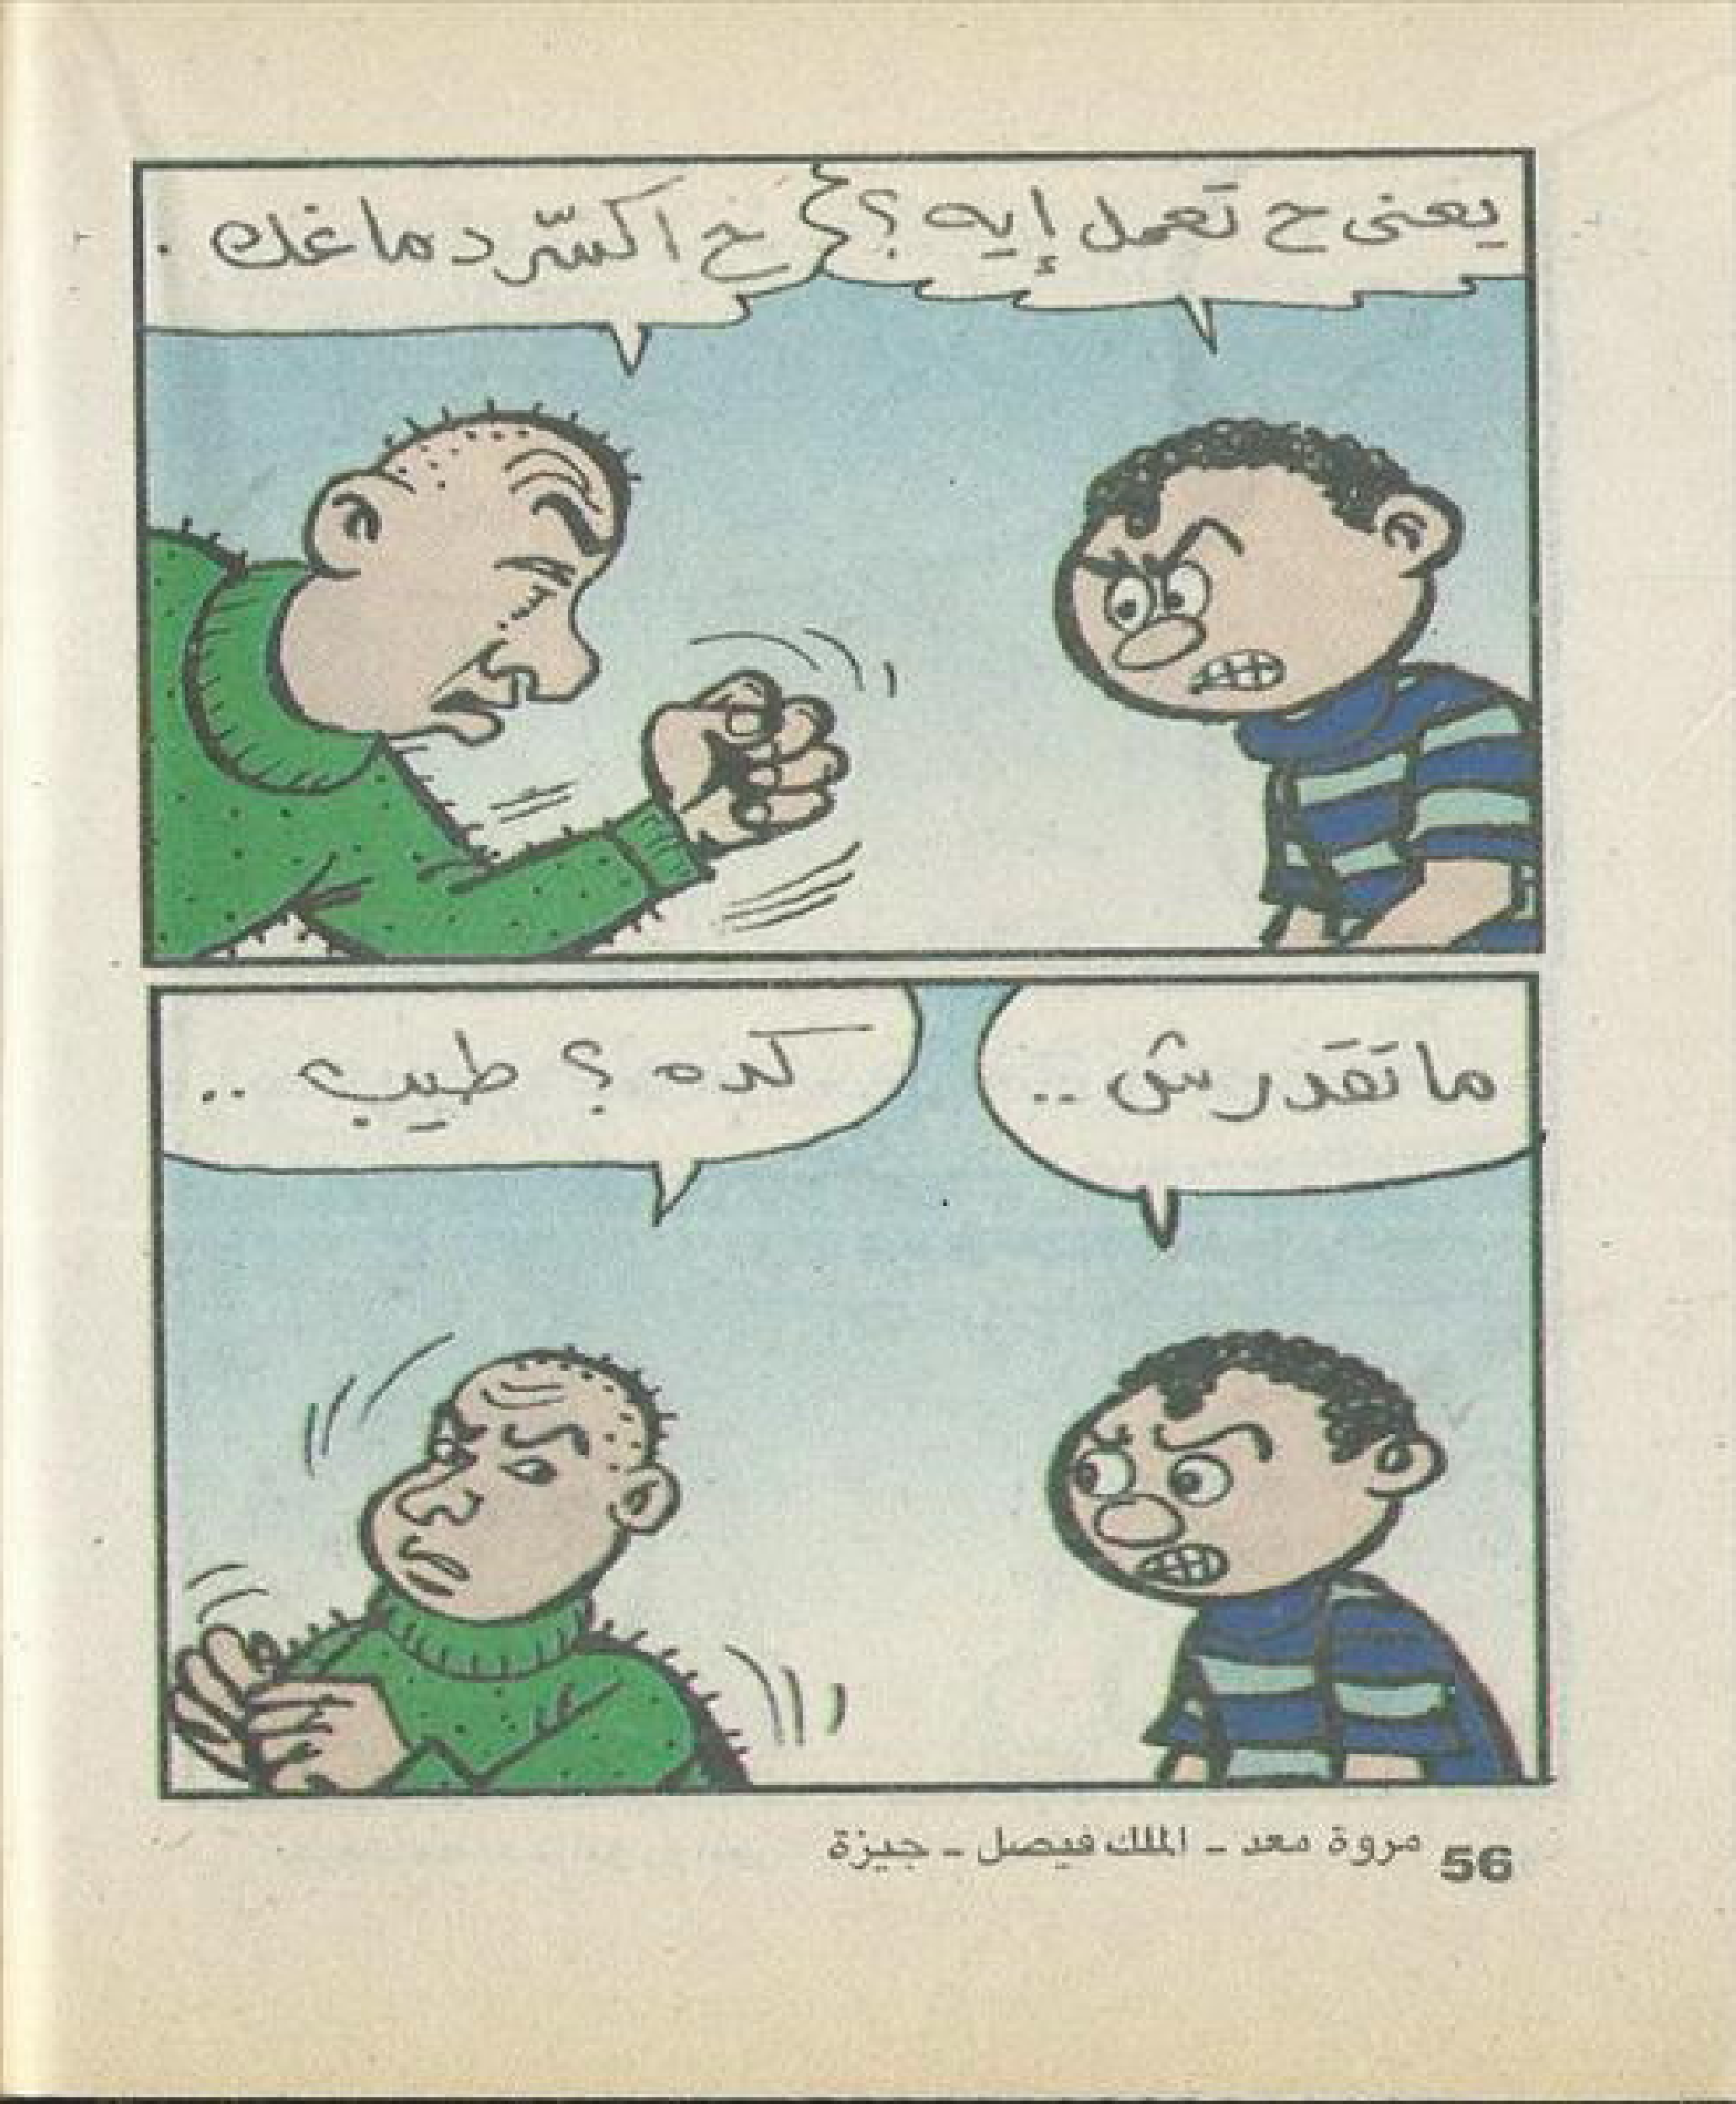 يعنى ح تَعمل إيه ؟
ح اكسّر دماغك .
ما تَقدَرش ..
كده ؟ طيب ..
56 مروة معد - الملك فيصل - جيزة